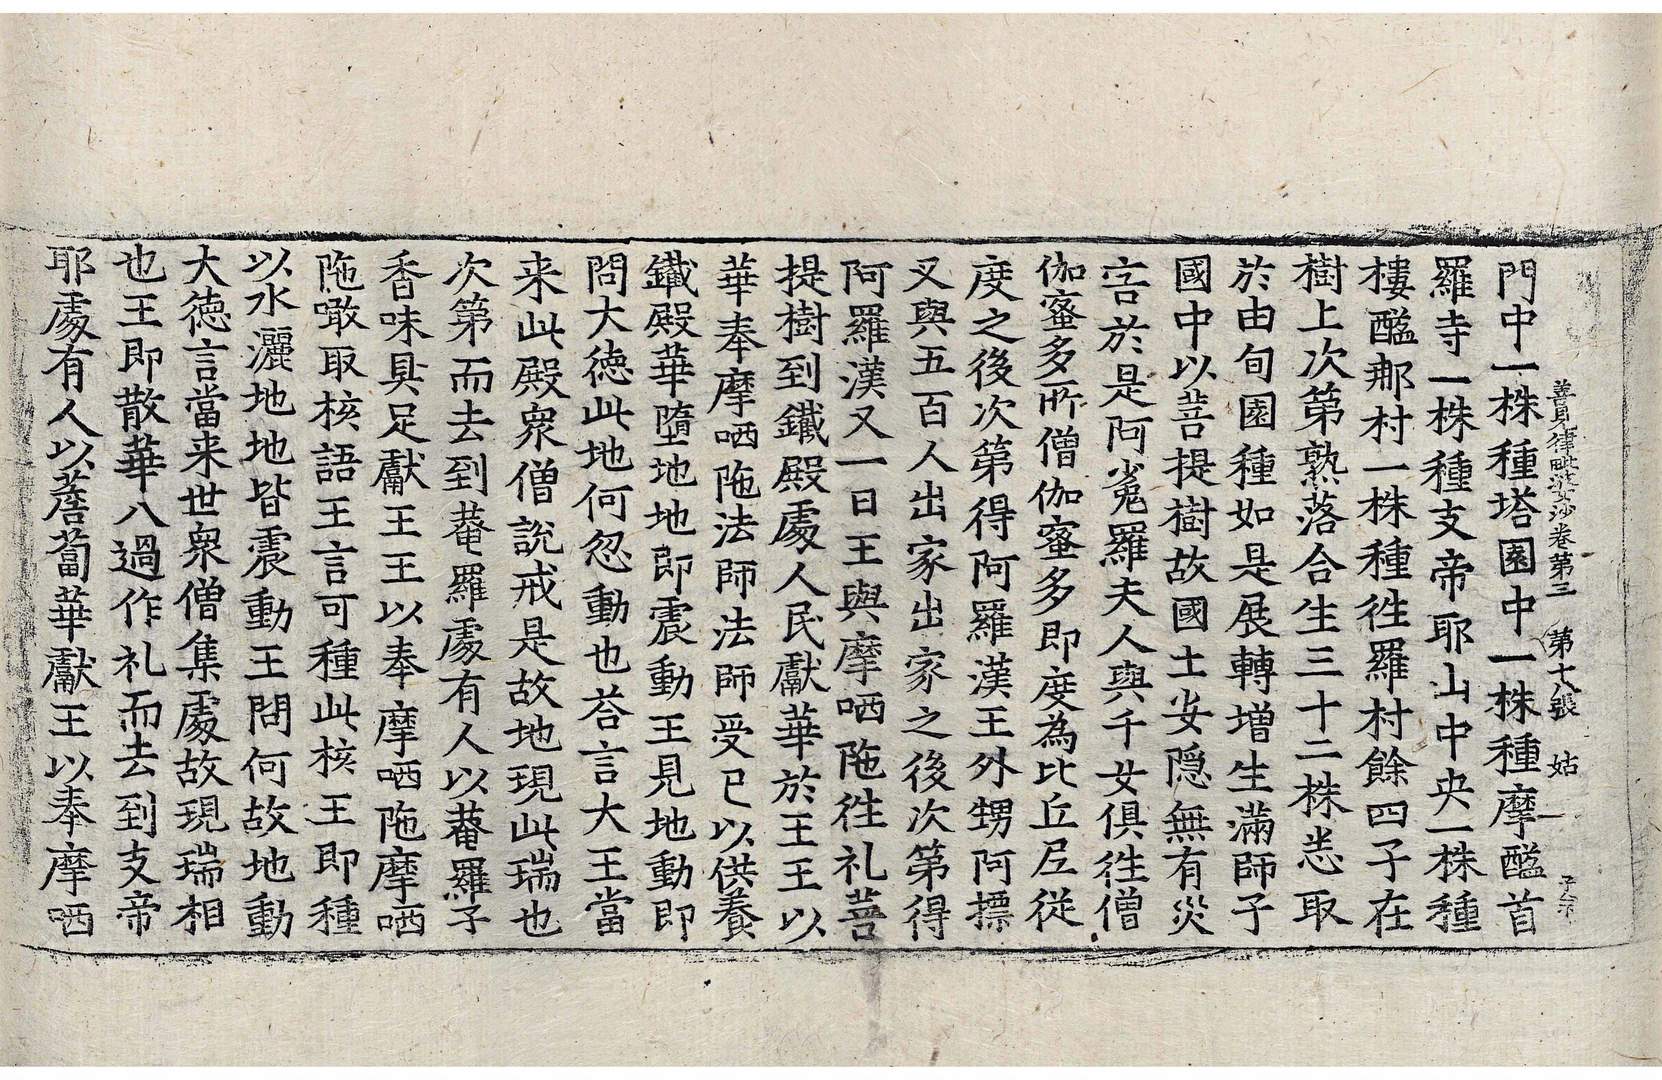 善見律毗婆沙卷第三 第十八張 姑
門中一株種塔園中一株種摩醯首
羅寺一株種支帝耶山中央一株種
樓醯那村一株種徃羅村餘四子在
樹上次第熟落合生三十二株悉取
於由旬園種如是展轉增生滿師子
國中以菩提樹故國土安隱無有災
害於是阿㝹羅夫人與千女俱徃僧
伽蜜多所僧伽蜜多即度為比丘尼從
度之後次第得阿羅漢王外甥阿摽
叉與五百人出家出家之後次第得
阿羅漢又一日王與摩哂陁徃礼菩
提樹到鐵殿處人民獻華於王王以
華奉摩哂陁法師法師受已以供養
鐵殿華墮地地即震動王見地動即
問大德此地何忽動也荅言大王當
来此殿衆僧說戒是故地現此瑞也
次第而去到菴羅處有人以菴羅子
香味具足獻王王以奉摩哂陁摩哂
陁噉取核語王言可種此核王即種
以水灑地地皆震動王問何故地動
大德言當来世衆僧集處故現瑞相
也王即散華八過作礼而去到支帝
耶處有人以薝蔔華獻王以奉摩哂